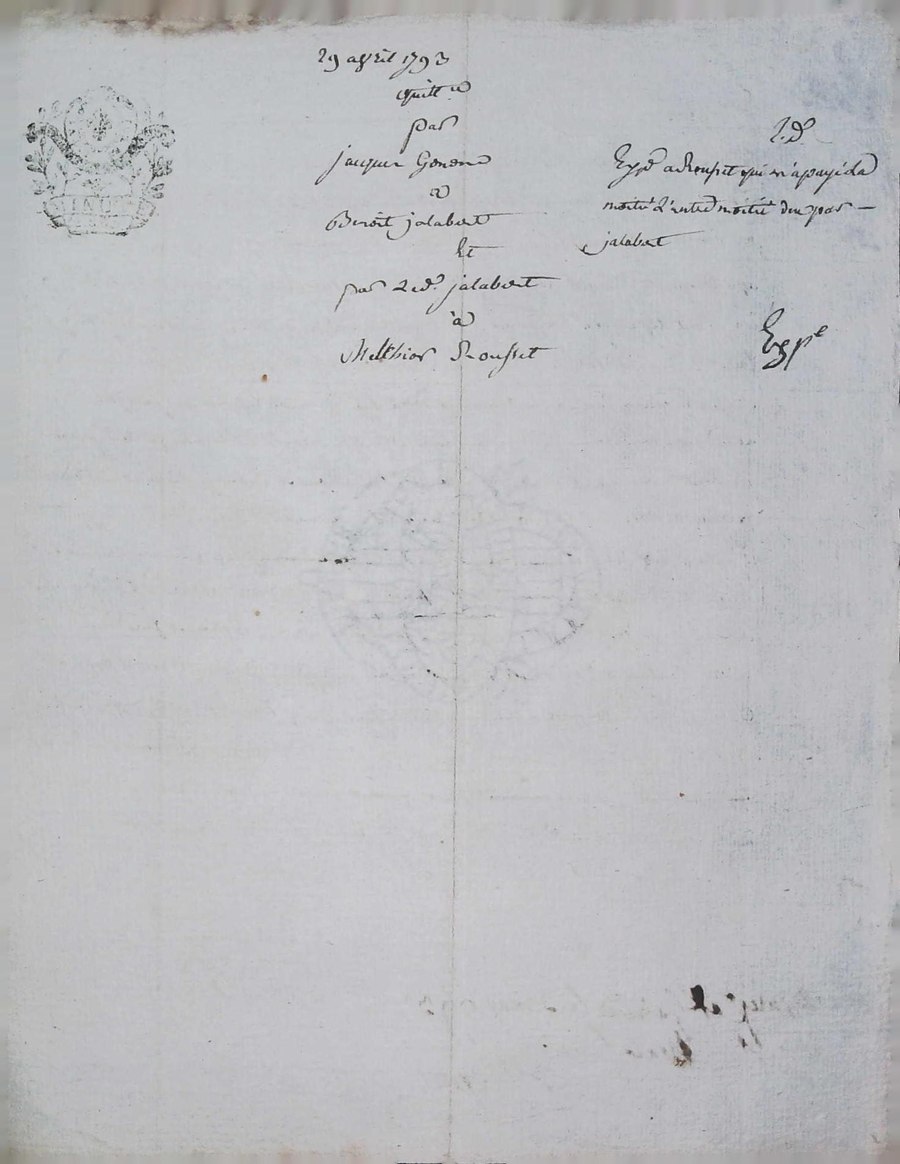 29 avril 1793
quitt ce
par
jacques Gonon
a
Benoit jalabert
Et
par led. jalabert
à
Melchior Rousset
Expe a Rousset qui m'a payé la
moitié l'autre moitié due par —
jalabert
Expe